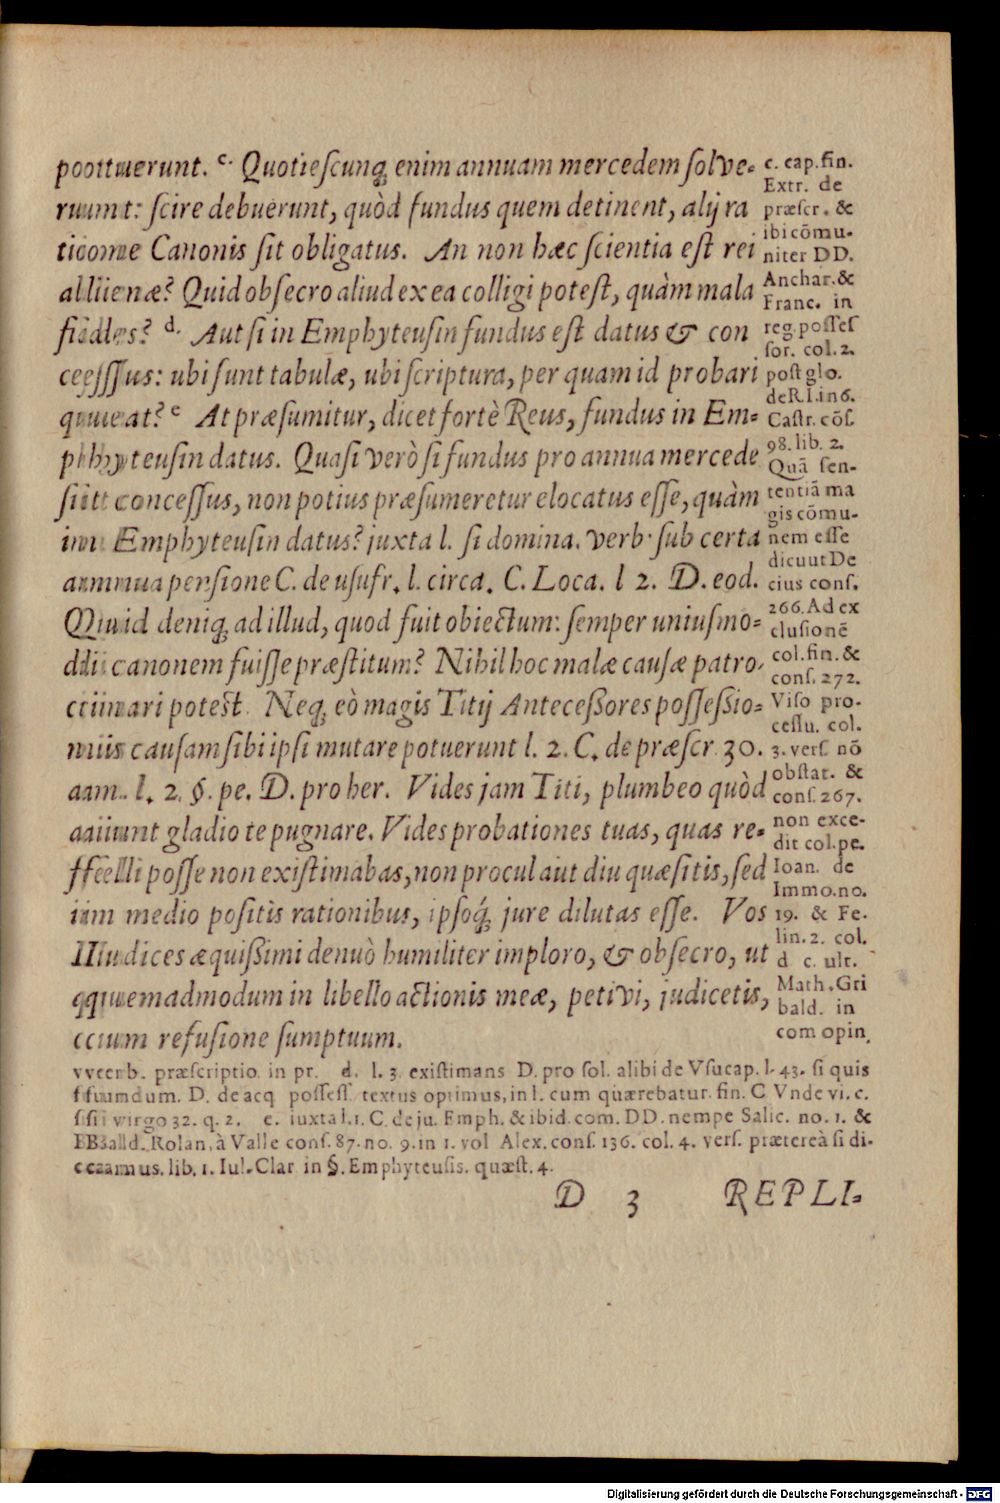 potuerunt. c. Quotiescunq; enim annuam mercedem solve-
runt: scire debuerunt, quòd fundus quem detinent, alij ra
tione Canonis sit obligatus. An non hæc scientia est rei
alienæ? Quid obsecro aliud ex ea colligi potest, quàm mala
fides? d. Aut si in Emphyteusin fundus est datus & con
cessus: ubi sunt tabulæ, ubi scriptura, per quam id probari
queat? e At præsumitur, dicet fortè Reus, fundus in Em-
phyteusin datus. Quasi verò si fundus pro annua mercede
sit concessus, non potius præsumeretur elocatus esse, quàm
in Emphyteusin datus? juxta l. si domina. verb. sub certa
annua pensione C. de usufr. l. circa. C. Loca. l 2. D. eod.
Quid deniq; ad illud, quod fuit obiectum: semper uniusmo-
di canonem fuisse præstitum? Nihil hoc malæ causæ patro-
cinari potest. Neq; eò magis Titij Antecessores possessio-
nis causam sibi ipsi mutare potuerunt l. 2. C. de præscr. 30.
an. l. 2. §. pe. D. pro her. Vides jam Titi, plumbeo quòd
aiunt gladio te pugnare. Vides probationes tuas, quas re-
felli posse non existimabas, non procul aut diu quæsitis, sed
in medio positis rationibus, ipsoq́; jure dilutas esse. Vos
Iudices æquissimi denuò humiliter imploro, & obsecro, ut
quemadmodum in libello actionis meæ, petivi, judicetis,
cum refusione sumptuum.
c. cap. fin.
Extr. de
præscr. &
ibi cõmu-
niter DD.
Anchar. &
Franc. in
reg. posses
sor. col. 2.
post glo.
de R. I. in 6.
Castr. cõs.
98. lib. 2.
Quã sen-
tentiã ma
gis cõmu-
nem esse
dicuut De
cius cons.
266. Ad ex
clusionẽ
col. fin. &
cons. 272.
Viso pro-
cessu. col.
3. vers. nõ
obstat. &
cons. 267.
non exce-
dit col. pe.
Ioan. de
Immo. no.
19. & Fe-
lin. 2. col.
d c. ult.
Math. Gri
bald. in
com opin.
verb. præscriptio. in pr. d. l. 3. existimans D. pro sol. alibi de Vsucap. l. 43. si quis
fundum. D. de acq possess. textus optimus, in l. cum quærebatur. fin. C Vnde vi. c.
si virgo 32. q. 2. e. iuxta l. 1. C. de ju. Emph. & ibid. com. DD. nempe Salic. no. 1. &
Bald. Rolan. à Valle cons. 87. no. 9. in 1. vol Alex. cons. 136. col. 4. vers. prætereà si di-
camus. lib. 1. Iul. Clar in §. Emphyteusis. quæst. 4.
D 3 REPLI-
Digitalisierung gefördert durch die Deutsche Forschungsgemeinschaft - DFG